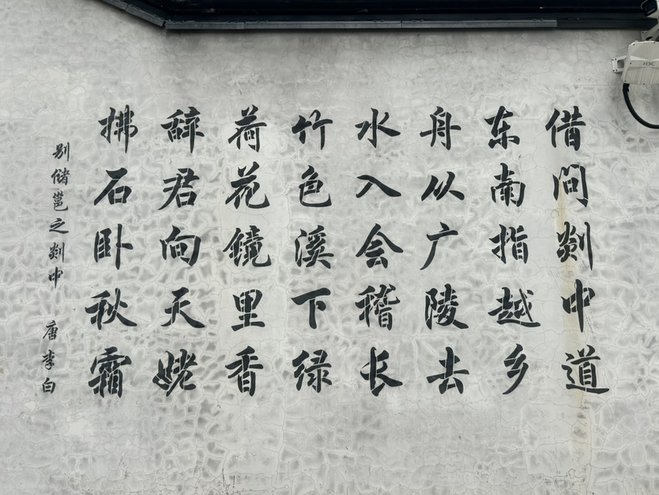 借问剡中道
东南指越乡
舟从广陵去
水入会稽长
竹色溪下绿
荷花镜里香
辞君向天姥
拂石卧秋霜
别储邕之剡中 唐 李白